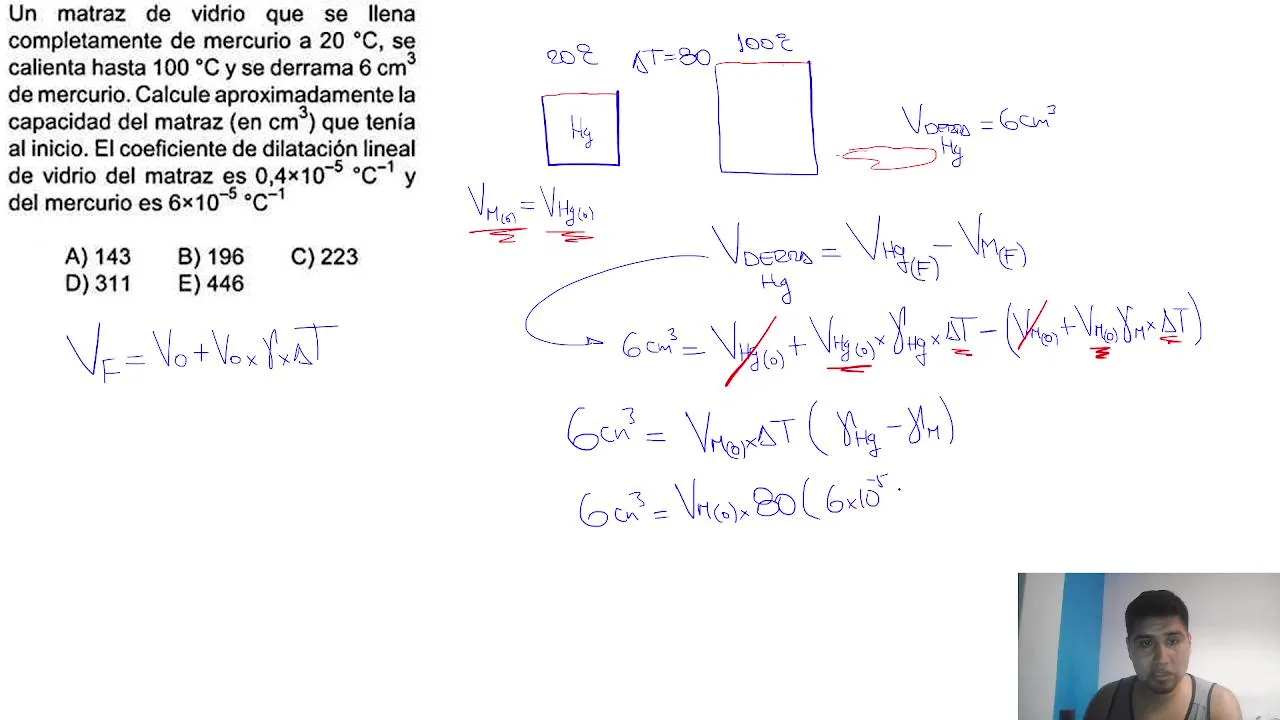 Un matraz de vidrio que se llena
completamente de mercurio a 20 °C, se
calienta hasta 100 °C y se derrama 6 cm³
de mercurio. Calcule aproximadamente la
capacidad del matraz (en cm³) que tenía
al inicio. El coeficiente de dilatación lineal
de vidrio del matraz es 0,4×10⁻⁵ °C⁻¹ y
del mercurio es 6×10⁻⁵ °C⁻¹
A) 143 B) 196 C) 223
D) 311 E) 446
V_F = V_0 + V_0 × γ × ΔT
20°C ΔT=80 100°C
Hg
V_DERRA Hg = 6cm³
V_M(0) = V_Hg(0)
V_DERRA Hg = V_Hg(F) − V_M(F)
6cm³ = V_Hg(0) + V_Hg(0) × γ_Hg × ΔT − (V_M(0) + V_M(0) γ_M × ΔT)
6cm³ = V_M(0) × ΔT (γ_Hg − γ_M)
6cm³ = V_M(0) × 80 (6×10⁻⁵